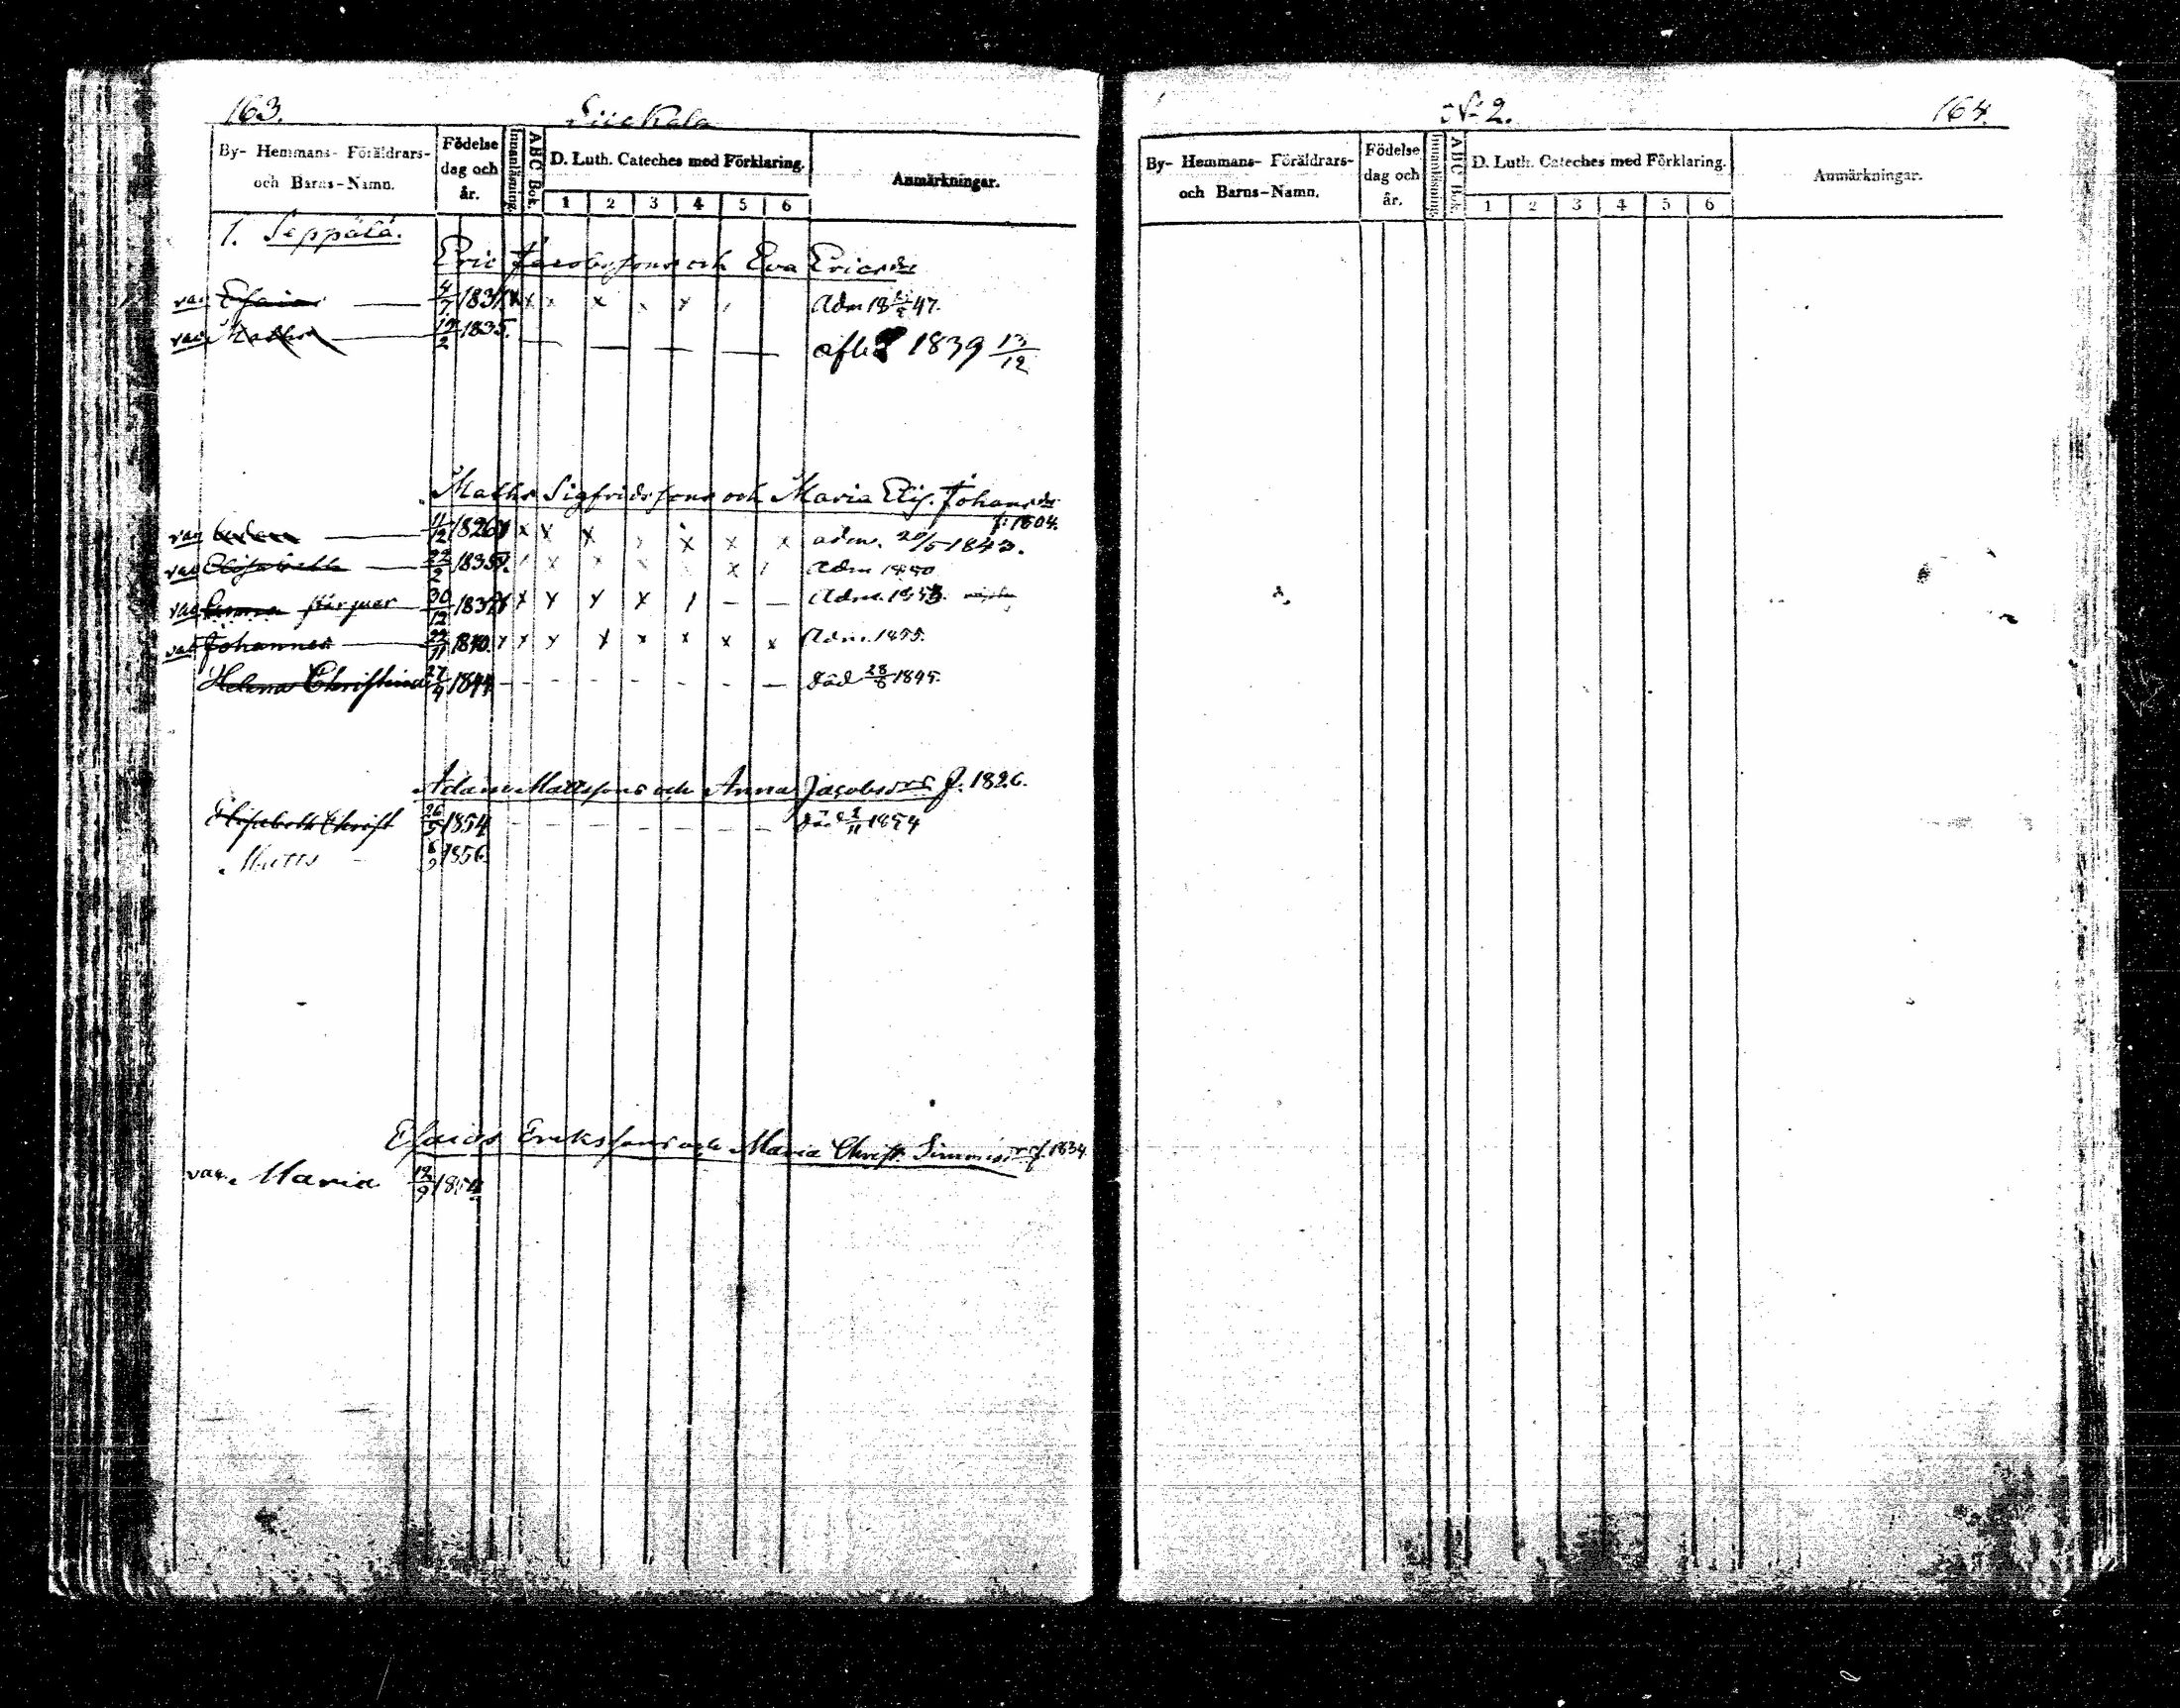 163.
By- Hemmans- Föräldrars- och Barns-Namn.
Födelse dag och år.
Innanläsning.
ABC Bok.
D. Luth. Cateches med Förklaring.
1 2 3 4 5 6
Anmärkningar.
1. Seppälä.
Eric Jacobssons och Eva Ericsdr
vac Esaias 4/7 1831 x x x x x x Adm 18 47.
vac 12/2 1835. — — — — afled 1839 13/12
Maths Sigfridssons och Maria Elis. Johansdr
f. 1804.
vac 11/12 1826 x x x x x x x adm. 20/5 1843.
vac Elisabeth 22/2 1835 x x x x Adm 1850
vac 30/12 1837 x x x x x — — Adm. 1853.
vac Johannes 22/11 1840. x x x x x x x x Adm. 1855.
Helena Christina 27/4 1844 - - - - - - - död 28/8 1845.
Adam Mattssons och Anna Jacobsdr f. 1826.
Elisabeth Christ 26/5 1854 - - - - - - - död 11 1854
Matts - 6/9 1856
Esaias Erikssons och Maria Christ. Simonsdr f. 1834.
vac. Maria 18/9 1854
№ 2.
164.
By- Hemmans- Föräldrars- och Barns-Namn.
Födelse dag och år.
Innanläsning.
ABC Bok.
D. Luth. Cateches med Förklaring.
1 2 3 4 5 6
Anmärkningar.